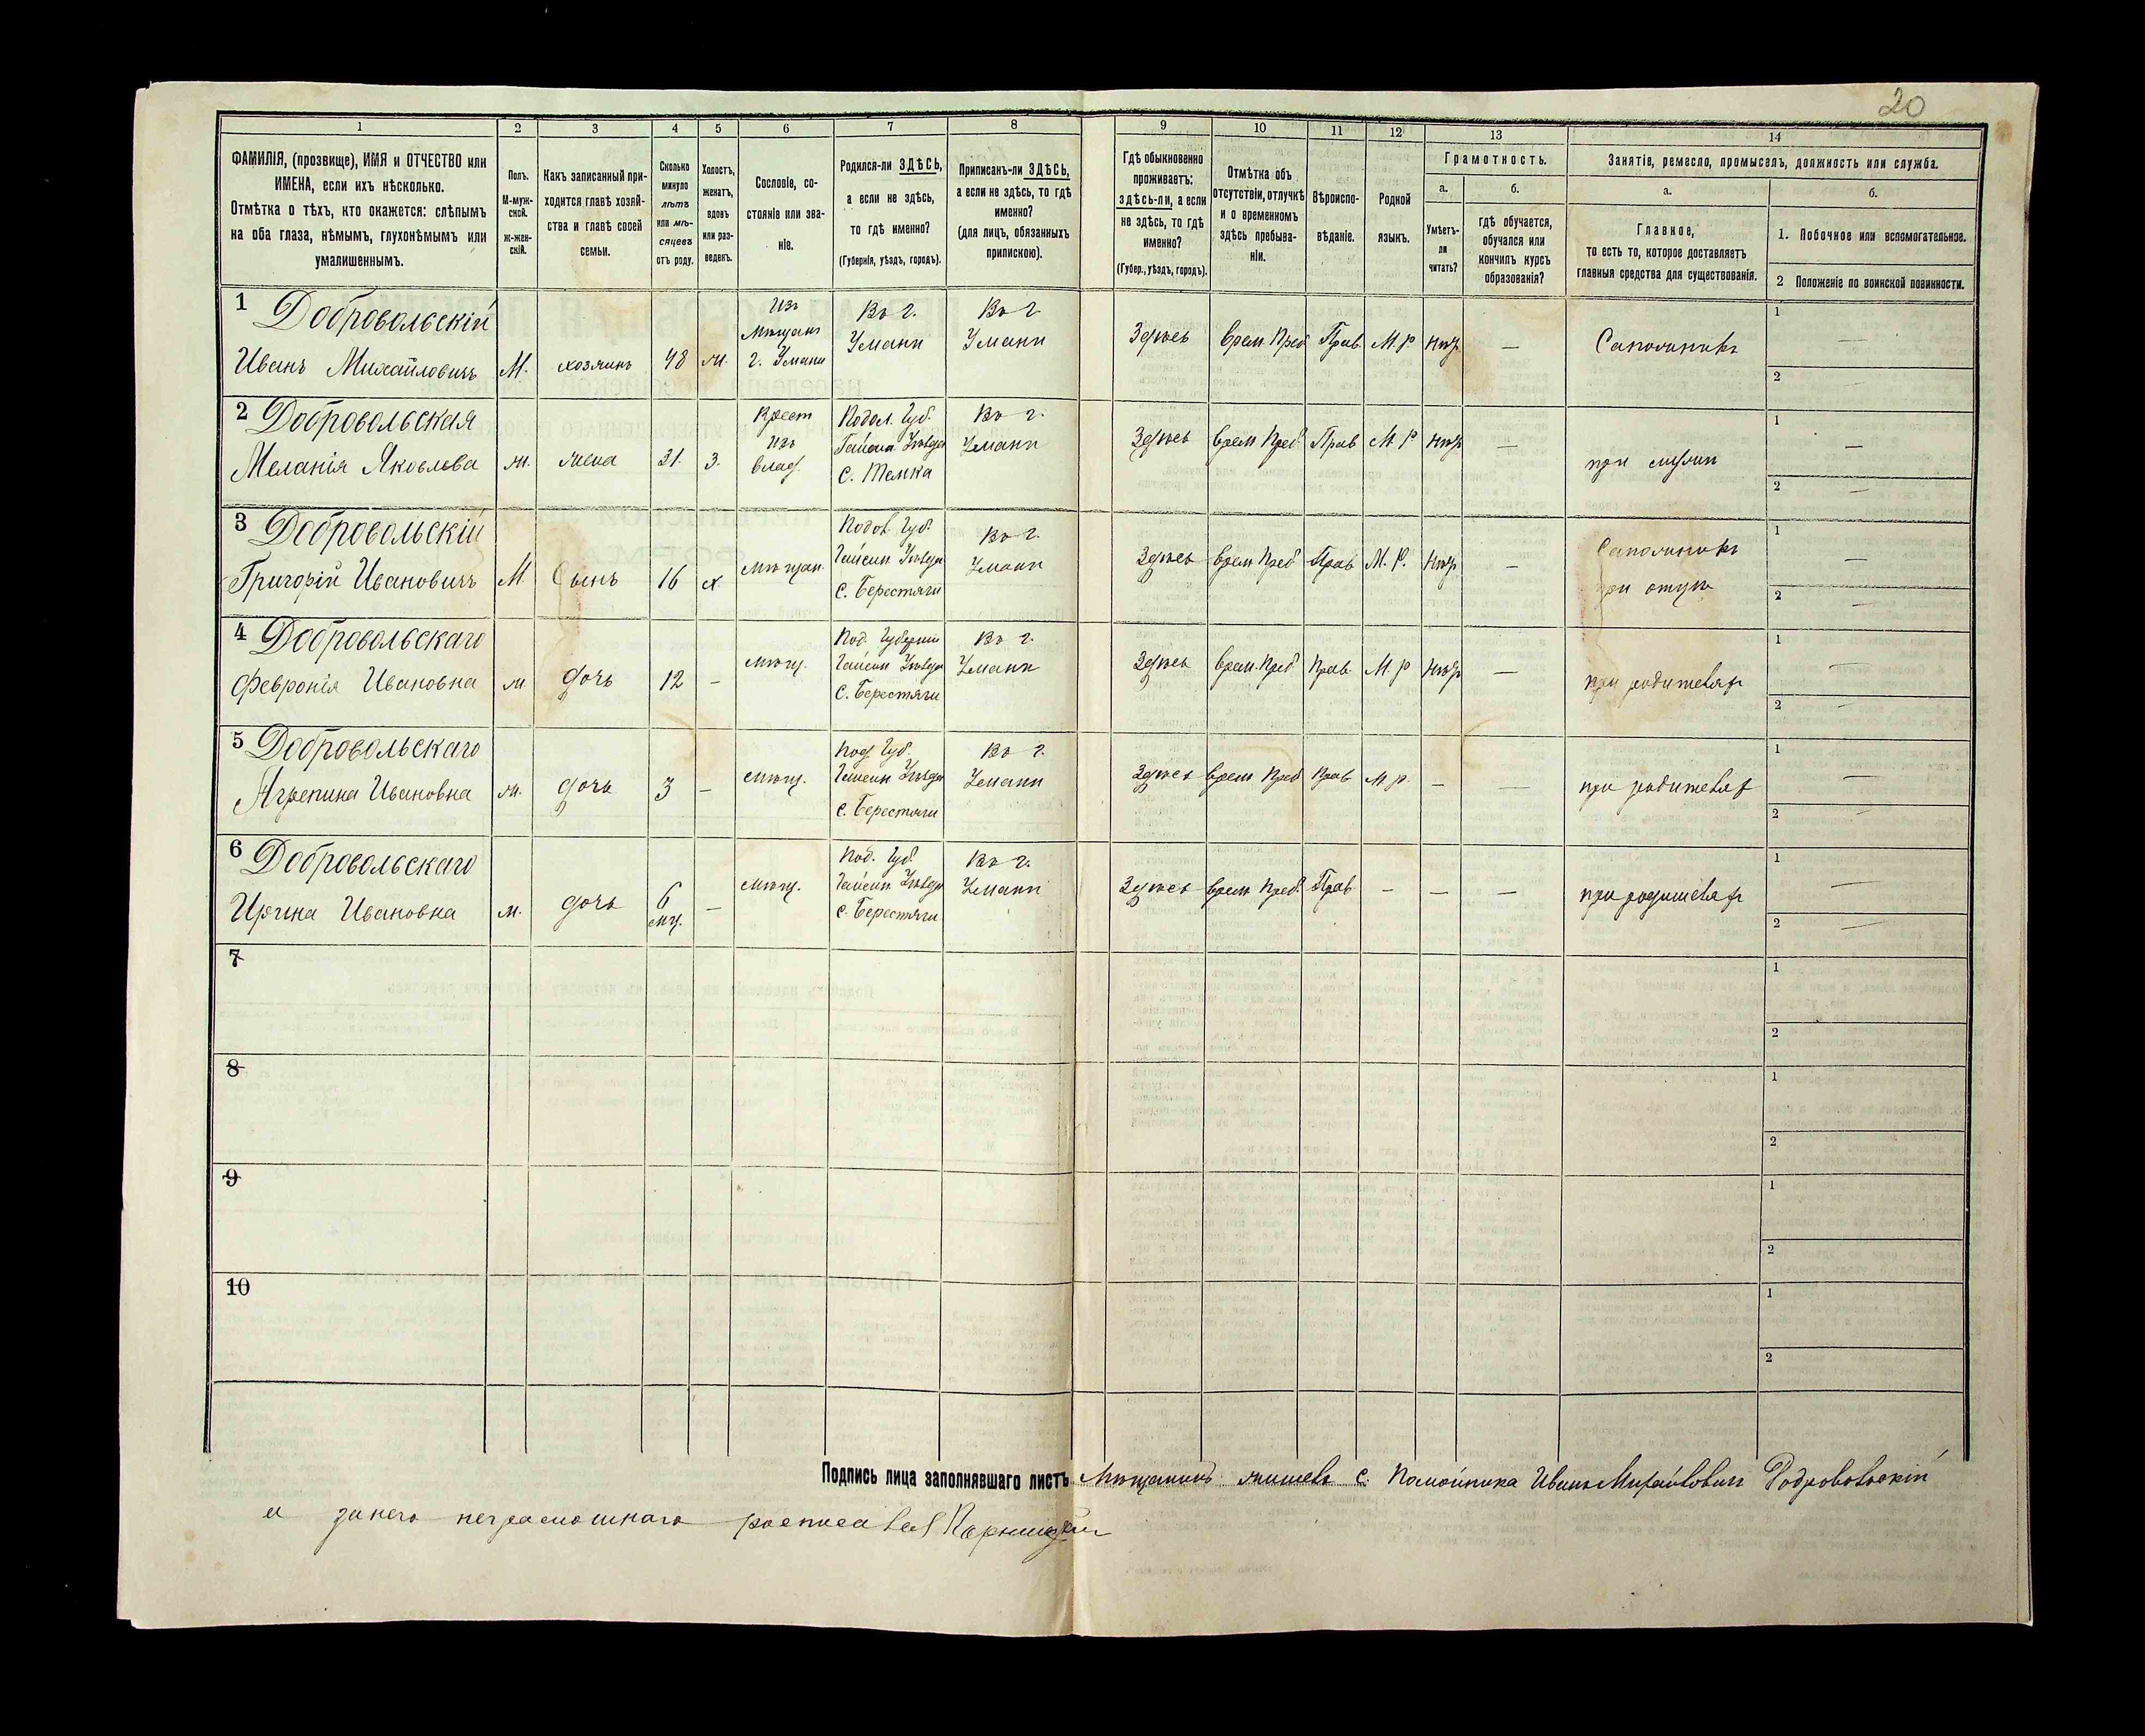 20
1 2 3 4 5 6 7 8 9 10 11 12 13 14
ФАМИЛІЯ, (прозвище), ИМЯ и ОТЧЕСТВО или
ИМЕНА, если ихъ нѣсколько.
Отмѣтка о тѣхъ, кто окажется: слѣпымъ
на оба глаза, нѣмымъ, глухонѣмымъ или
умалишеннымъ.
Полъ.
М-муж-
ской.
Ж-жен-
скій.
Какъ записанный при-
ходится главѣ хозяй-
ства и главѣ своей
семьи.
Сколько
минуло
лѣтъ
или мѣ-
сяцевъ
отъ роду.
Холостъ,
женатъ,
вдовъ
или раз-
веденъ.
Сословіе, со-
стояніе или зва-
ніе.
Родился-ли ЗДѢСЬ,
а если не здѣсь,
то гдѣ именно?
(Губернія, уѣздъ, городъ).
Приписанъ-ли ЗДѢСЬ,
а если не здѣсь, то гдѣ
именно?
(для лицъ, обязанныхъ
припискою).
Гдѣ обыкновенно
проживаетъ:
здѣсь-ли, а если
не здѣсь, то гдѣ
именно?
(Губер., уѣздъ, городъ).
Отмѣтка объ
отсутствіи, отлучкѣ
и о временномъ
здѣсь пребыва-
ніи.
Вѣроиспо-
вѣданіе.
Родной
языкъ.
Грамотность.
а.
Умѣетъ-
ли
читать?
б.
гдѣ обучается,
обучался или
кончилъ курсъ
образованія?
Занятіе, ремесло, промыселъ, должность или служба.
а.
Главное,
то есть то, которое доставляетъ
главныя средства для существованія.
б.
1. Побочное или вспомогательное.
2 Положеніе по воинской повинности.
1 Добровольскій
Иванъ Михайловичъ М. хозяинъ 48 ж.
Изъ
мѣщанъ
г. Умани
Въ г.
Умани
Въ г.
Умани
Здѣсь врем. Преб Прав. М. Р нѣтъ —
1 —
2 —
2 Добровольская
Меланія Яковлева ж. жена 31. З.
Крест
Изъ
влад.
Подол. Губ.
Гайсин. Уѣзда
С.
Въ г.
Умани
Здѣсь врем Преб. Прав М. Р нѣтъ —
при мужи
1 —
2 —
3 Добровольскій
Григорій Ивановичъ М Сынъ 16 х мѣщан.
Подол. Губ.
Гайсин Уѣзда
с. Берестяги
Въ г.
Умани
Здѣсь врем Преб Прав М. Р. нѣтъ —
при отцѣ
1 —
2 —
4 Добровольскаго
Февронія Ивановна ж дочь 12 — мѣщ.
Под. Губерніи
Гайсин Уѣзда
С. Берестяги
Въ г.
Умани
Здѣсь врем. Преб Прав. М. Р нѣтъ —
при родителях
1 —
2 —
5 Добровольскаго
Агрепина Ивановна ж. дочь 3 — мѣщ.
Под Губ.
Гайсин Уѣзда
с. Берестяги
Въ г.
Умани
Здѣсь врем Преб Прав М. Р. — —
при родителях
1 —
2 —
6 Добровольскаго
Ирина Ивановна ж. дочь 6 мц. — мѣщ.
Под. Губ.
Гайсин Уѣзда
с. Берестяги
Въ г.
Умани
Здѣсь врем Преб. Прав — — —
при родителях
1 —
2 —
7
1
2
8
1
2
9
1
2
10
1
2
Подпись лица заполнявшаго листъ Мѣщанинъ житель с. Иванъ Михайлович Добровольскій
а за него неграмотнаго росписался